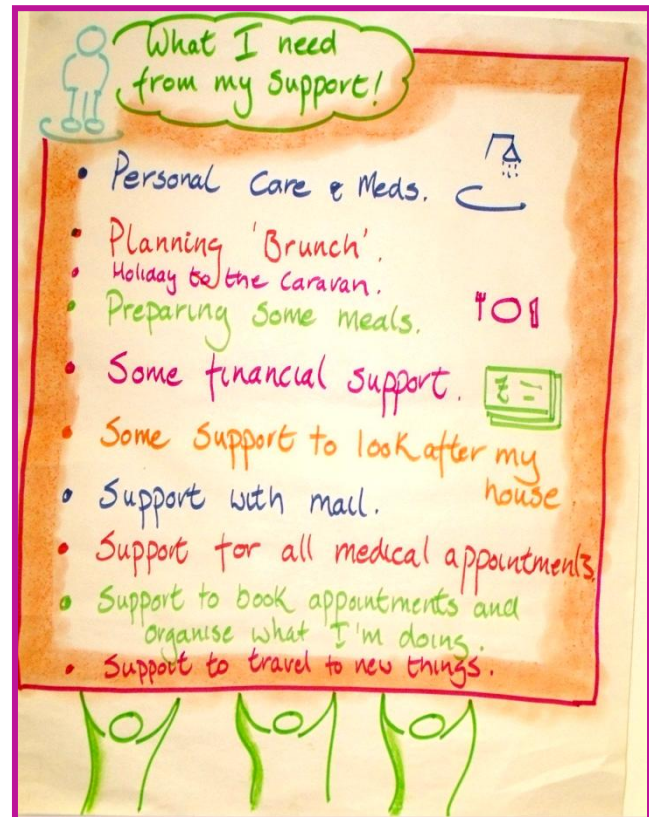 What I need
from my support!
• Personal Care & Meds.
• Planning 'Brunch'.
• Holiday to the Caravan.
• Preparing some meals.
• Some financial support.
£
• Some support to look after my
house.
• Support with mail.
• Support for all medical appointments.
• Support to book appointments and
organise what I'm doing.
• Support to travel to new things.